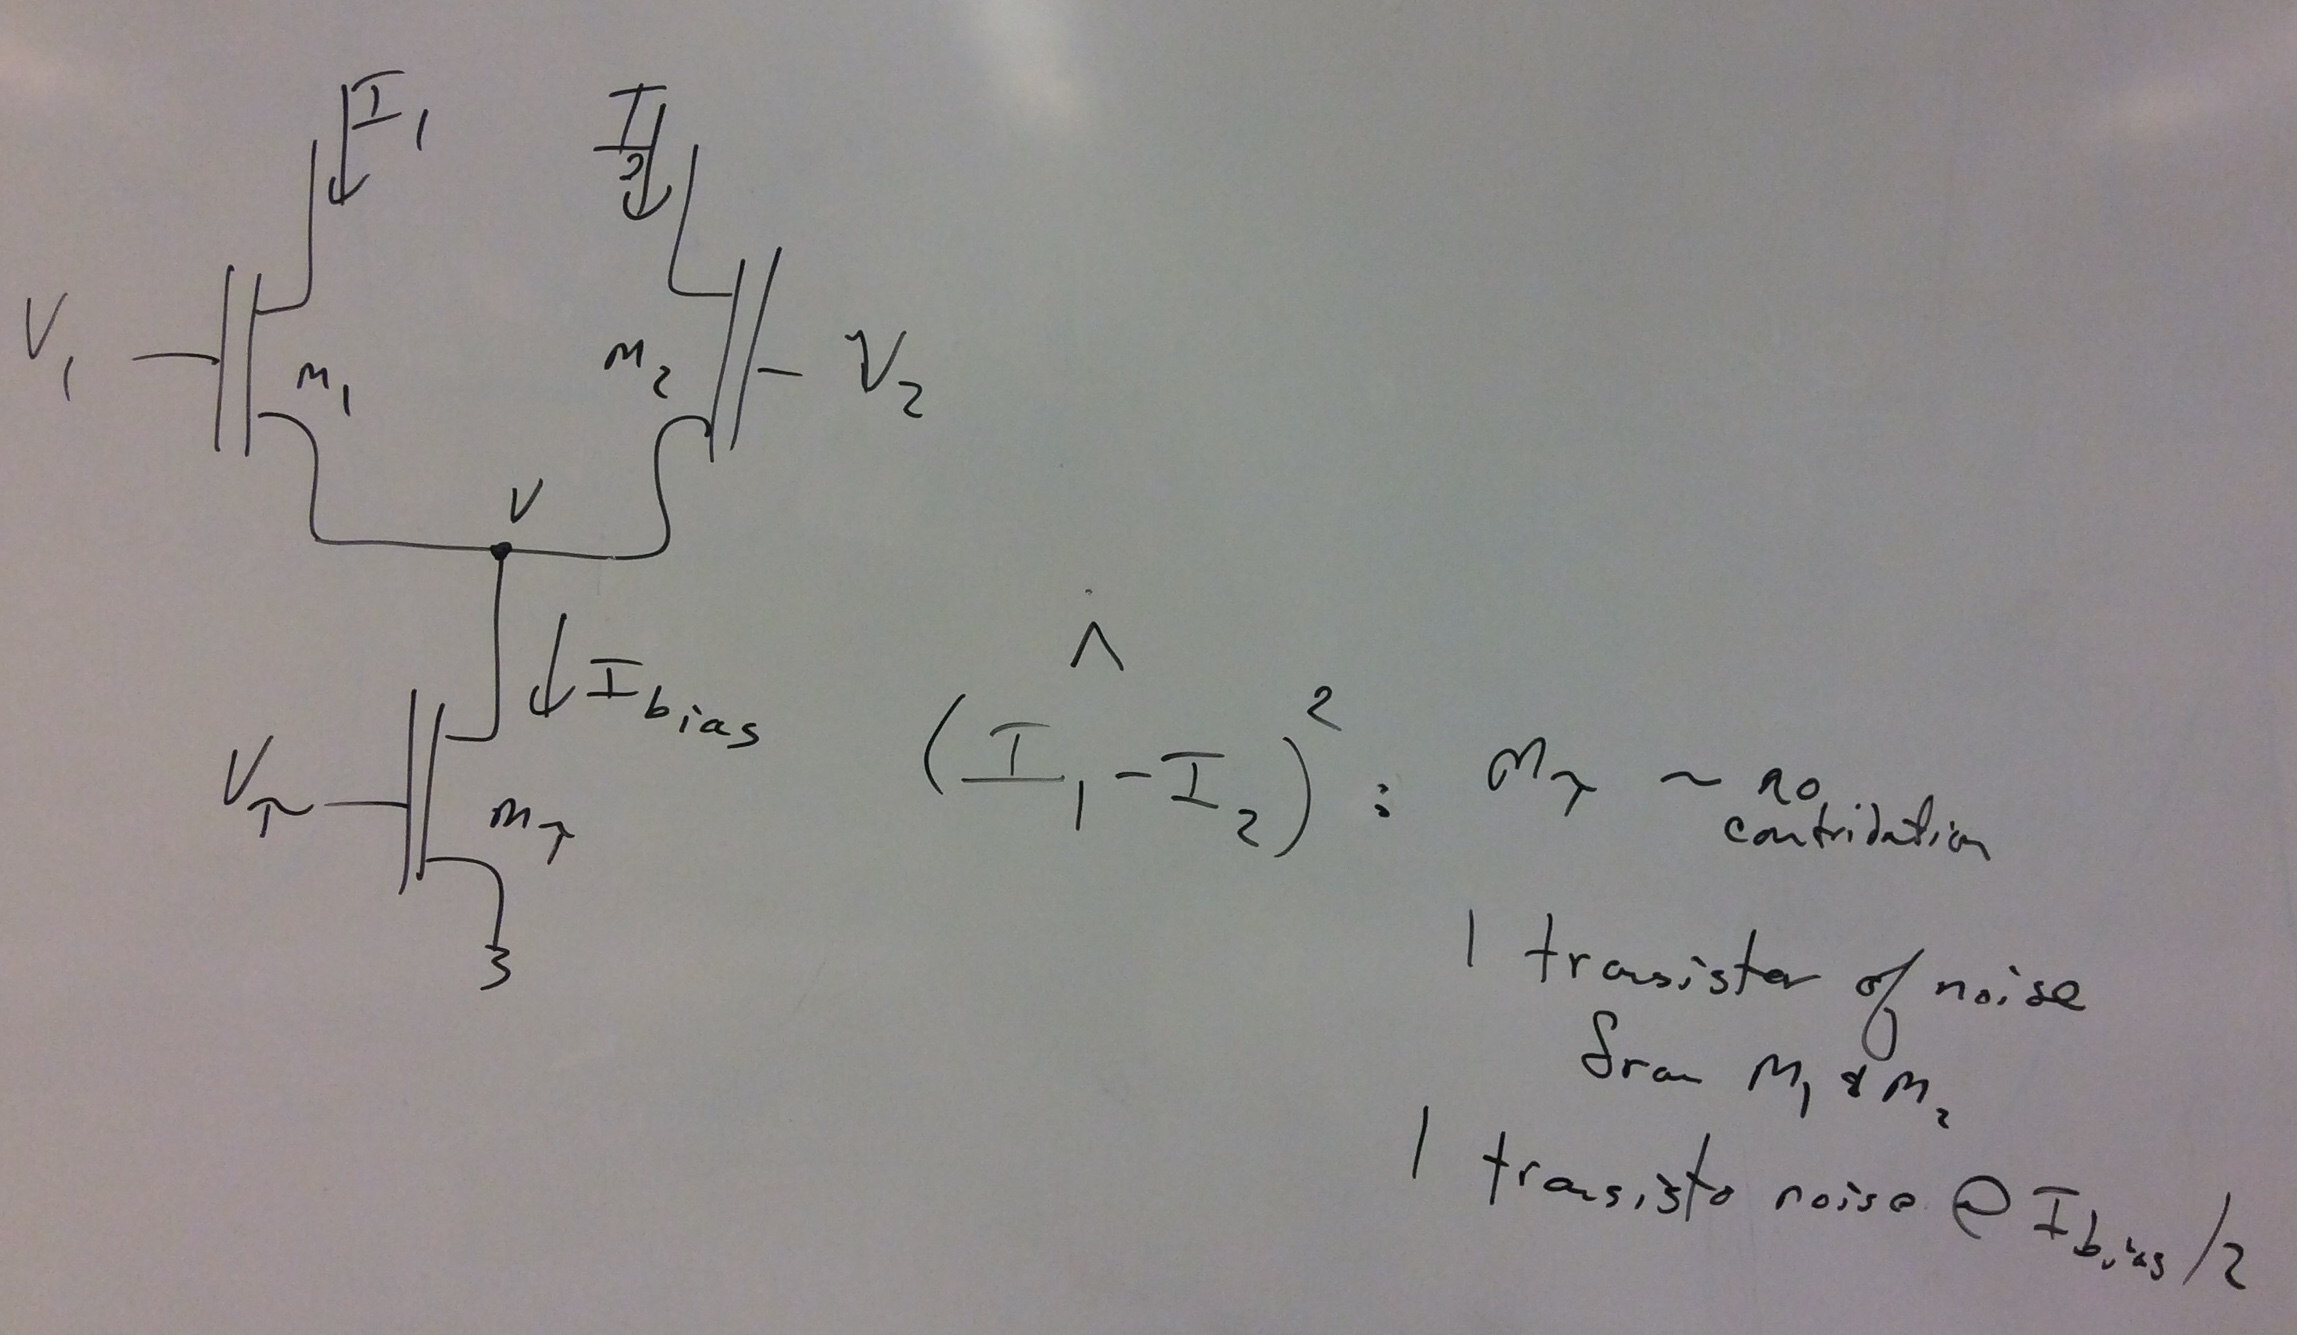 I1
I2
V1
M1
M2
V2
V
Ibias
Vτ
Mτ
^
(I1 - I2)² : Mτ ~ no
contribution
1 transistor of noise
from M1 & M2
1 transisto noise @ Ibias/2